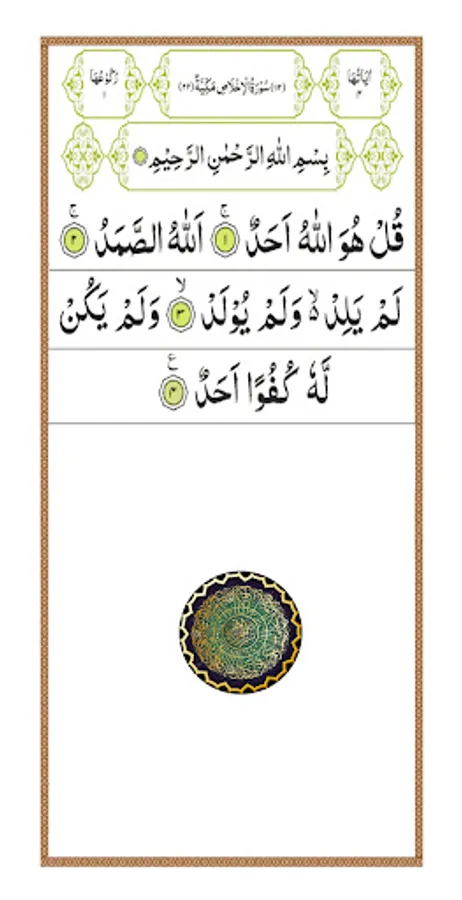 اٰیَاتُهَا ۴
(۱۱۲) سُوْرَةُ الْاِخْلَاصِ مَكِّیَّةٌ (۲۲)
رُكُوْعُهَا ۱
بِسْمِ اللّٰهِ الرَّحْمٰنِ الرَّحِیْمِ
قُلْ هُوَ اللّٰهُ اَحَدٌ ۚ‏﴿۱﴾ اَللّٰهُ الصَّمَدُ ۚ‏﴿۲﴾
لَمْ یَلِدْ ۙ۬ وَلَمْ یُوْلَدْ ۙ‏﴿۳﴾ وَلَمْ یَكُنْ
لَّهٗ كُفُوًا اَحَدٌ ﴿۴﴾